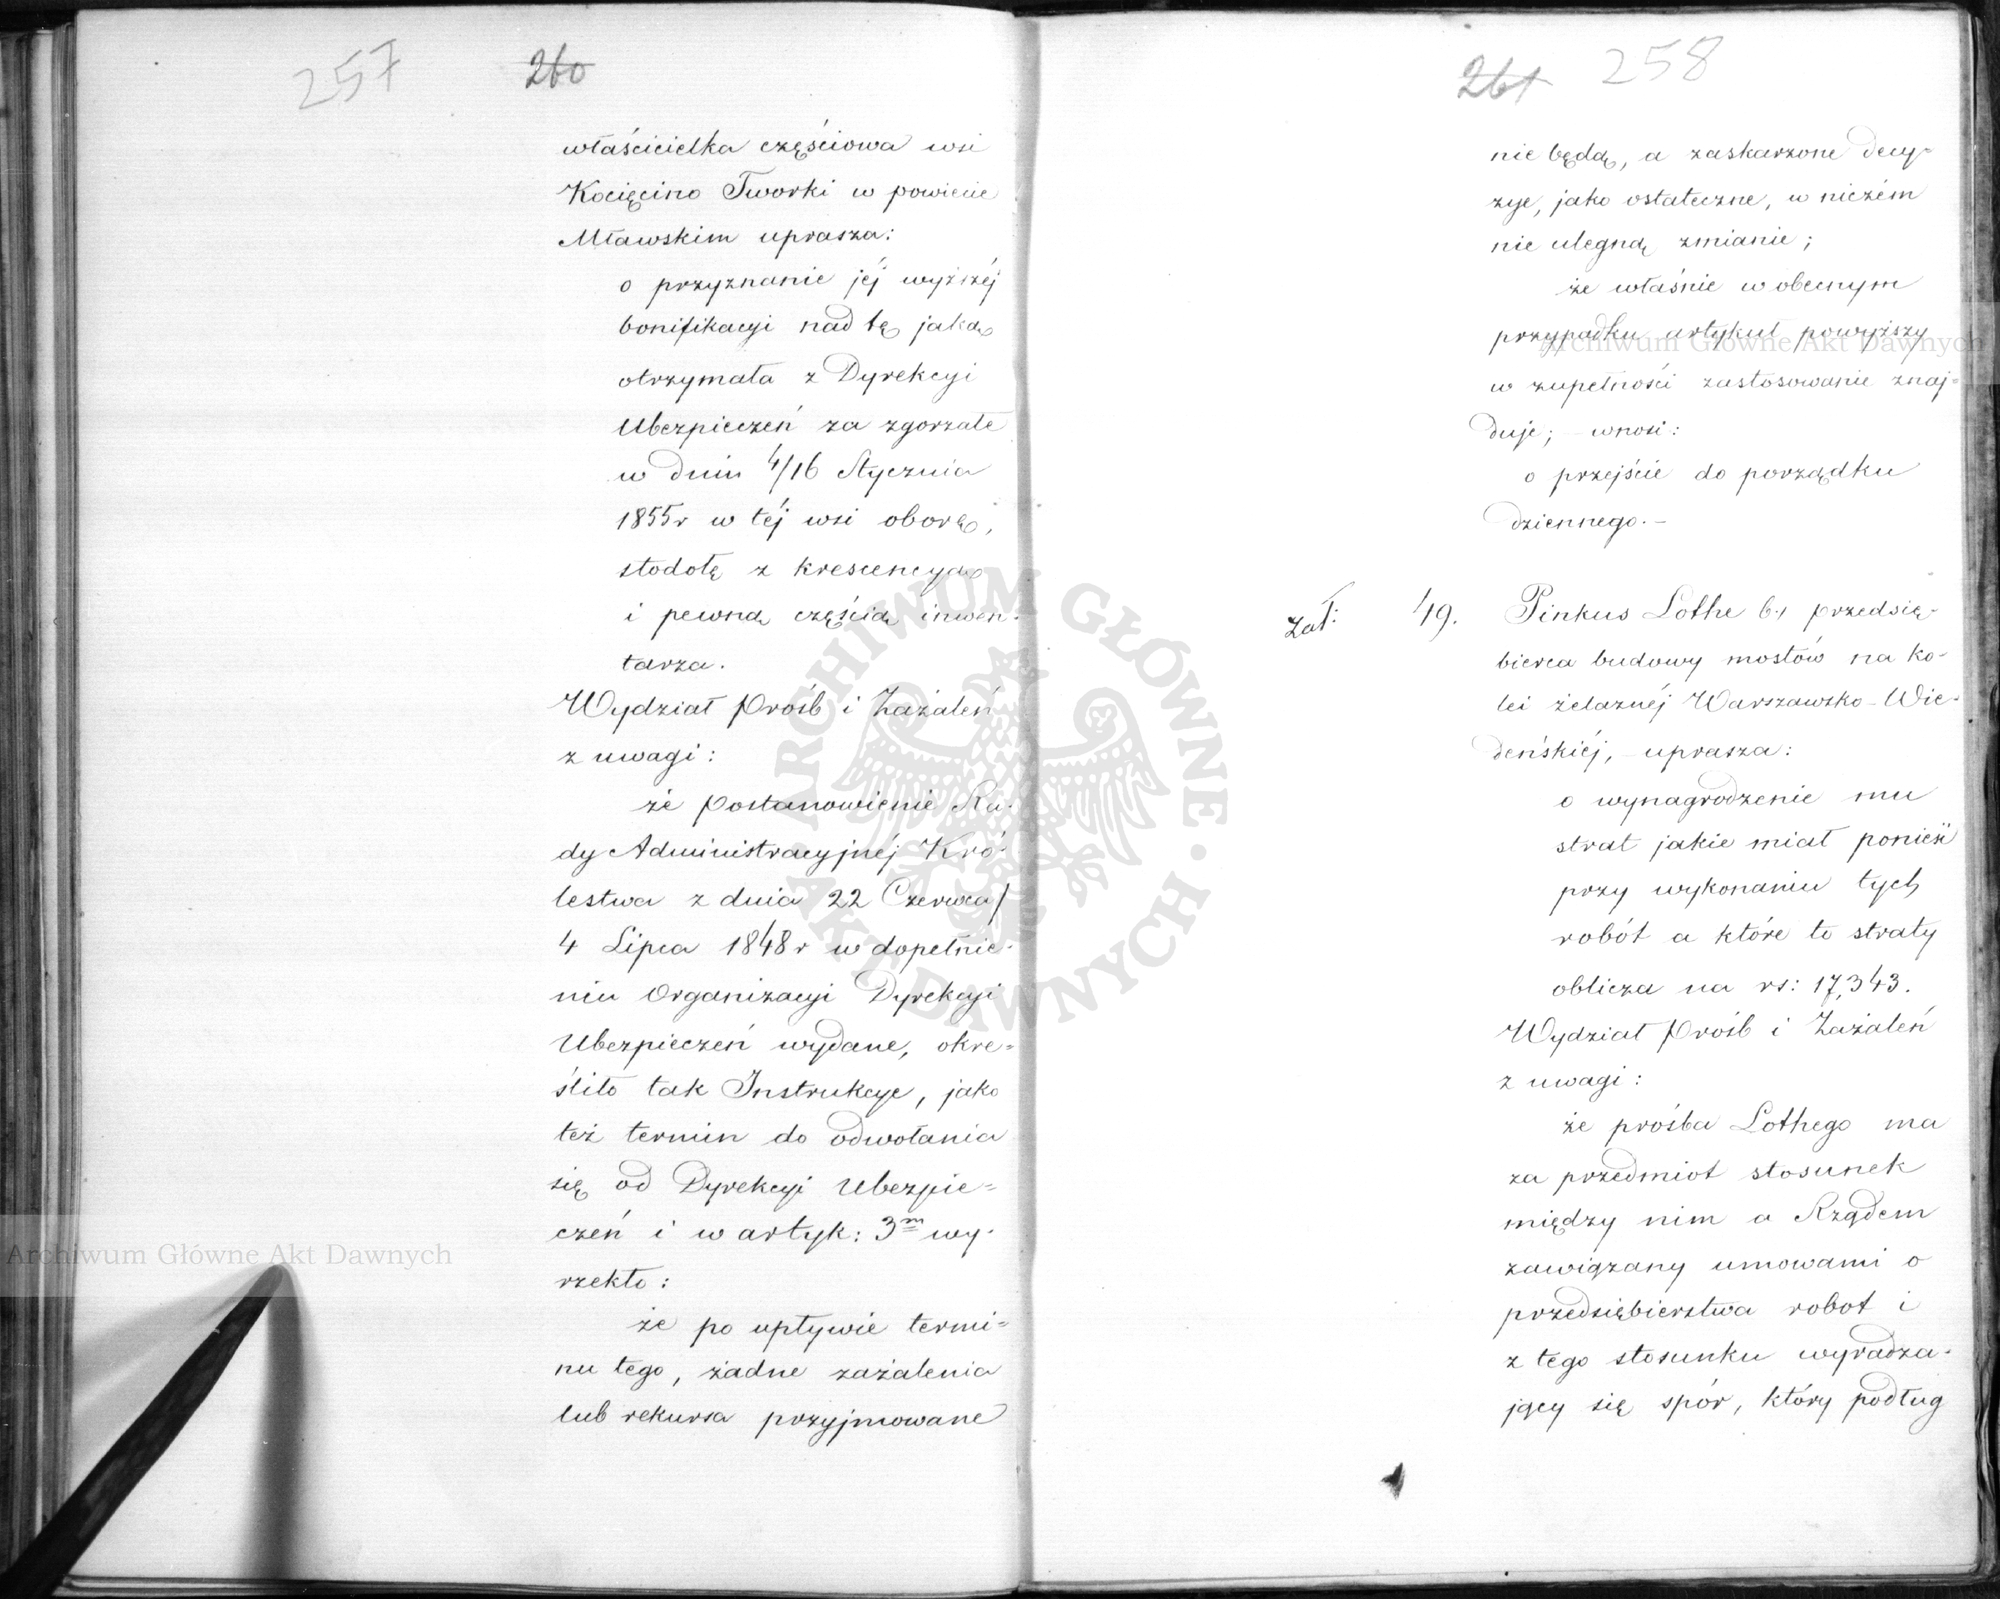 257 260
właścicielka częściowa wsi
Kocięcino Tworki w powiecie
Mławskim uprasza:
o przyznanie jéj wyższéj
bonifikacyi nad tę jaką
otrzymała z Dyrekcyi
Ubezpieczeń za zgorzałe
w dniu 4/16 Stycznia
1855r w téj wsi oborę,
stodołę z krescencyą
i pewną częścią inwen-
tarza.
Wydział Próśb i Zażaleń
z uwagi:
że Postanowienie Ra-
dy Administracyjnéj Kró-
lestwa z dnia 22 Czerwca/
4 Lipca 1848r w dopełnie-
niu Organizacyi Dyrekcyi
Ubezpieczeń wydane, okre=
śliło tak Instrukcye, jako
też termin do odwołania
się od Dyrekcyi Ubezpie=
czeń i w artyk: 3m wy-
rzekło:
że po upływie termi=
nu tego, żadne zażalenia
lub rekursa przyjmowane
261 258
nie będą, a zaskarżone decy=
zye, jako ostateczne, w niczém
nie ulegną zmianie;
że właśnie w obecnym
przypadku artykuł powyższy
w zupełności zastosowanie znaj=
duje; – wnosi:
o przejście do porządku
dziennego. –
Zał: 49. Pinkus Lothe b. przedsię-
bierca budowy mostów na ko-
lei żelaznéj Warszawsko-Wie-
deńskiéj, uprasza:
o wynagrodzenie mu
strat jakie miał ponieść
przy wykonaniu tych
robót a które to straty
oblicza na rs: 17,343.
Wydział Próśb i Zażaleń
z uwagi:
że prośba Lothego ma
za przedmiot stosunek
między nim a Rządem
zawiązany umowami o
przedsiębierstwa robot i
z tego stosunku wyradza-
jący się spór, który podług
ARCHIWUM GŁÓWNE AKT DAWNYCH
Archiwum Główne Akt Dawnych
Archiwum Główne Akt Dawnych